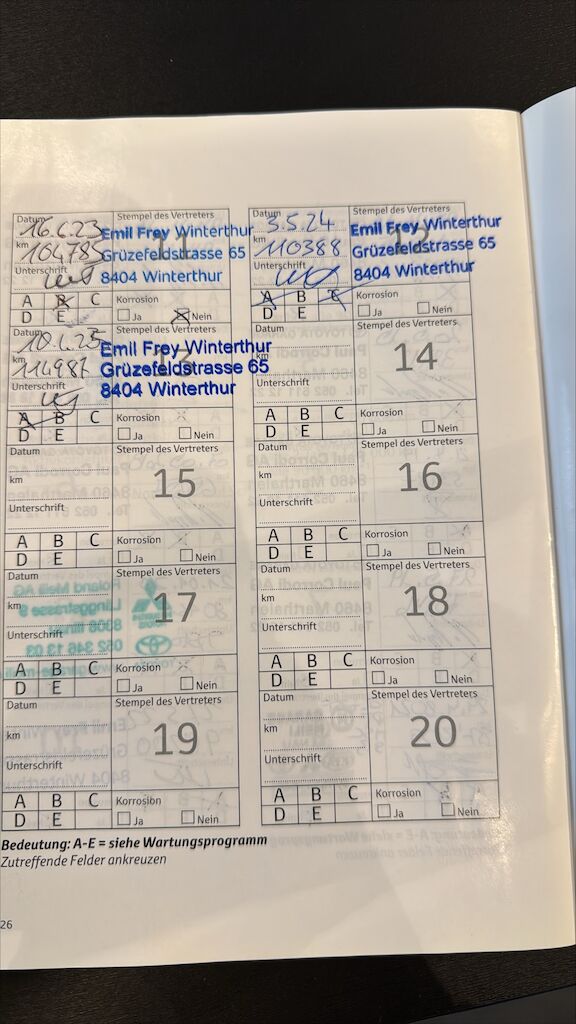 Datum 16.6.23 Stempel des Vertreters
11
km 104785
Unterschrift
Emil Frey Winterthur
Grüzefeldstrasse 65
8404 Winterthur
A B C Korrosion
D E Ja Nein
Datum 3.5.24 Stempel des Vertreters
km 110388
Unterschrift
Emil Frey Winterthur
Grüzefeldstrasse 65
8404 Winterthur
A B C Korrosion
D E Ja Nein
Datum 10.1.25 Stempel des Vertreters
km 114987
Unterschrift
Emil Frey Winterthur
Grüzefeldstrasse 65
8404 Winterthur
A B C Korrosion
D E Ja Nein
Datum Stempel des Vertreters
km
14
Unterschrift
A B C Korrosion
D E Ja Nein
Datum Stempel des Vertreters
km
15
Unterschrift
A B C Korrosion
D E Ja Nein
Datum Stempel des Vertreters
km
16
Unterschrift
A B C Korrosion
D E Ja Nein
Datum Stempel des Vertreters
km
17
Unterschrift
A B C Korrosion
D E Ja Nein
Datum Stempel des Vertreters
km
18
Unterschrift
A B C Korrosion
D E Ja Nein
Datum Stempel des Vertreters
km
19
Unterschrift
A B C Korrosion
D E Ja Nein
Datum Stempel des Vertreters
km
20
Unterschrift
A B C Korrosion
D E Ja Nein
Bedeutung: A-E = siehe Wartungsprogramm
Zutreffende Felder ankreuzen
26